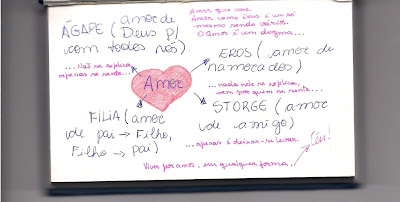 Amor que voce.
Amor como Deus é um só
mesmo sendo vários.
O Amor é um dogma...
ÁGAPE (amor de
Deus p/
com todos nós).
...Não se explica,
apenas se sente...
Amor
EROS (amor de
namorados)
...nada nele se explica,
nem por quem se sente...
FILIA (amor
de pai → Filho,
Filho → pai)
STORGE (amor
de amigo)
...apenas é deixar-se levar.
Viver por amor, em qualquer forma...